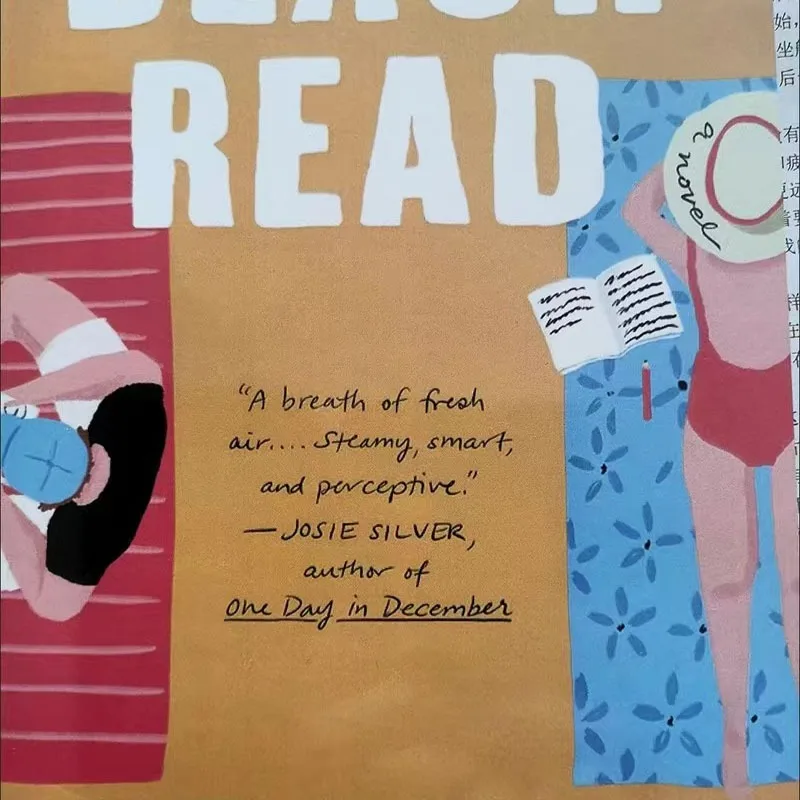 BEACH
READ
a novel
“A breath of fresh
air.... Steamy, smart,
and perceptive.”
—JOSIE SILVER,
author of
One Day in December
始，
坐
后
有
疲
要
样